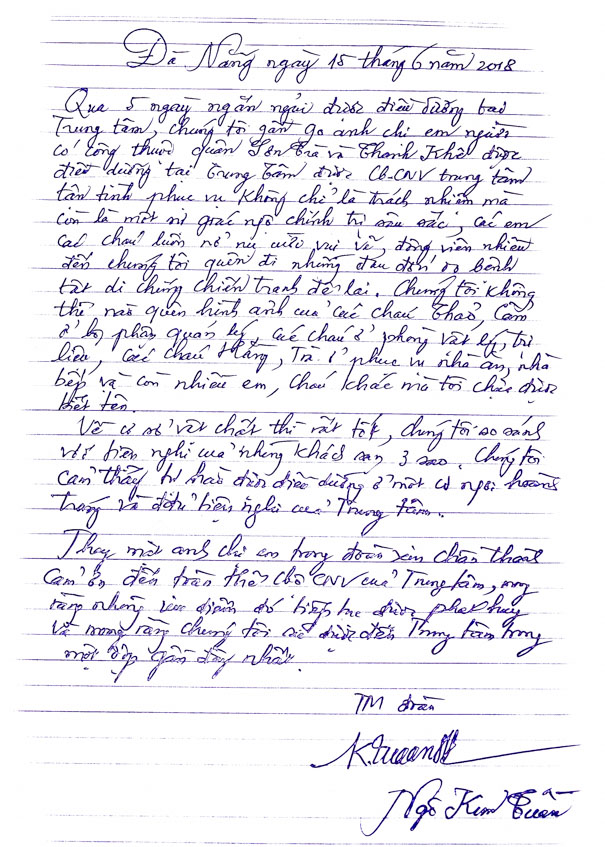 Đà Nẵng ngày 15 tháng 6 năm 2018
Qua 5 ngày ngắn ngủi được điều dưỡng tại
Trung tâm, chúng tôi gần 90 anh chị em người
có công thuộc quận Sơn Trà và Thanh Khê được
điều dưỡng tại trung tâm được CB-CNV trung tâm
tận tình phục vụ không chỉ là trách nhiệm mà
còn là một sự giác ngộ chính trị sâu sắc, các em
các cháu luôn nở nụ cười vui vẻ, động viên nhiều
đến chúng tôi quên đi những đau đớn do bệnh
tật di chứng chiến tranh để lại. Chúng tôi không
thể nào quên hình ảnh của các cháu Thảo, Cẩm
ở bộ phận quản lý, các cháu ở phòng vật lý trị
liệu, các cháu Hằng, Trà ở phục vụ nhà ăn, nhà
bếp và còn nhiều em, cháu khác mà tôi chưa được
biết tên.
Về cơ sở vật chất thì rất tốt, chúng tôi so sánh
với tiện nghi của những khách sạn 3 sao. Chúng tôi
cảm thấy tự hào được điều dưỡng ở một cơ ngơi hoành
tráng và đầy tiện nghi của Trung tâm.
Thay mặt anh chị em trong đoàn xin chân thành
cảm ơn đến toàn thể CB CNV của Trung tâm, mong
rằng những ưu điểm đó tiếp tục được phát huy
và mong rằng chúng tôi sẽ được đến Trung tâm trong
một dịp gần đây nhất.
TM đoàn
K.tuaan
Ngô Kim Tuấn